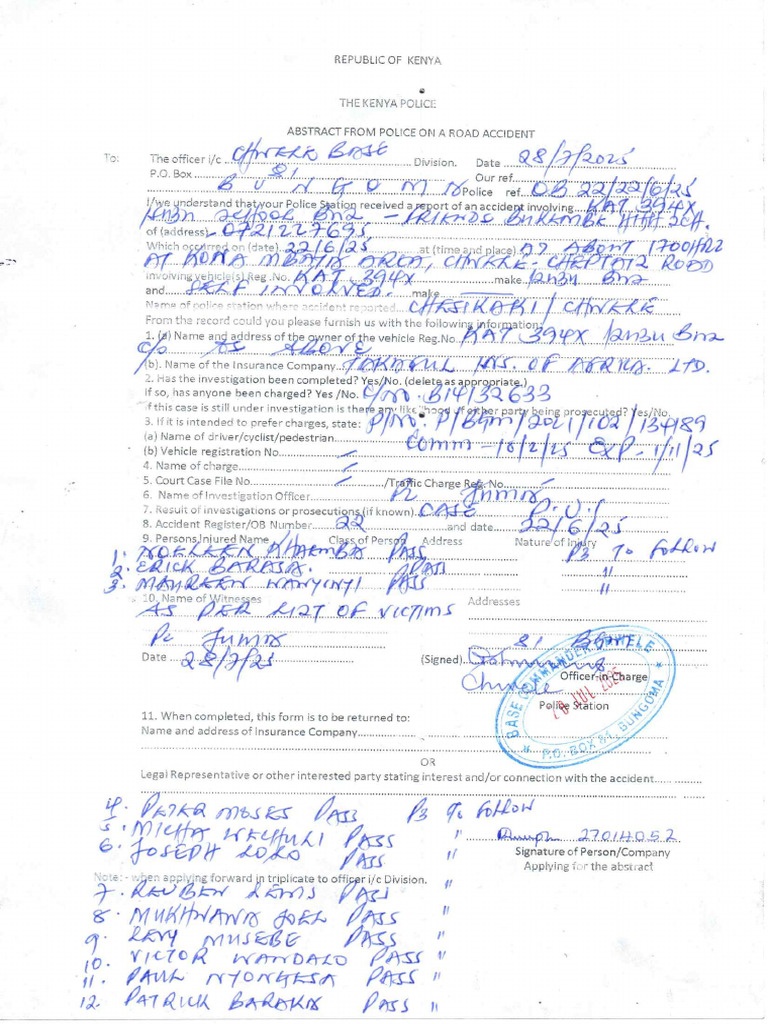 REPUBLIC OF KENYA
THE KENYA POLICE
ABSTRACT FROM POLICE ON A ROAD ACCIDENT
To: The officer i/c CHWELE BASE Division. Date 28/7/2025
P.O. Box 81 Our ref
BUNGOMA Police ref. OB 22/22/6/25
I/we understand that your Police Station received a report of an accident involving KAT 394X
ISUZU SCHOOL BUS - FRIENDS BUKEMBE HIGH SCH.
of (address) 0721227695
Which occurred on (date) 22/6/25 at (time and place) AT ABOUT 1700HRS
AT KONA MBAYA AREA, CHWELE-CHEPTAIS ROAD
involving vehicle(s) Reg .No. KAT 394X make ISUZU BUS
and SELF INVOLVED. make
Name of police station where accident reported CHESIKAKI / CHWELE
From the record could you please furnish us with the following information:
1. (a) Name and address of the owner of the vehicle Reg.No. KAT 394X ISUZU BUS
C/o AS ABOVE
(b). Name of the Insurance Company TAKAFUL INS. OF AFRICA. LTD.
2. Has the investigation been completed? Yes/No. (delete as appropriate.)
If so, has anyone been charged? Yes /No. C/No. B14132633
if this case is still under investigation is there any likelihood of either party being prosecuted? Yes/No.
3. If it is intended to prefer charges, state: P/No. P/BGM/2021/102/134189
(a) Name of driver/cyclist/pedestrian Comm - 10/2/25 EXP - 1/11/25
(b) Vehicle registration No.
4. Name of charge
5. Court Case File No. /Traffic Charge Reg. No.
6. Name of Investigation Officer Pc Juma
7. Result of investigations or prosecutions (if known) CASE P.U.I
8. Accident Register/OB Number 22 and date 22/6/25
9. Persons Injured Name Class of Person Address Nature of Injury
1. NOELEEN KHAEMBA PASS P3 TO FOLLOW
2. ERICK BARASA. PASS "
3. MAUREEN WANYONYI PASS "
10. Name of Witnesses Addresses
AS PER LIST OF VICTIMS
Pc Juma 81 BGM
Date 28/7/25 (Signed)
Officer-in-Charge
Chwele
Police Station
BASE COMMANDER CHWELE
28 JUL 2025
P.O. BOX 81, BUNGOMA
11. When completed, this form is to be returned to:
Name and address of Insurance Company
OR
Legal Representative or other interested party stating interest and/or connection with the accident
4. PETER MOSES PASS P3 TO FOLLOW
5. MICHA WECHULI PASS "
27014052
6. JOSEPH LOLO PASS "
Signature of Person/Company
Applying for the abstract
Note: - when applying forward in triplicate to officer i/c Division.
7. REUBEN LEWIS PASS "
8. MUKHWANA JOEL PASS "
9. LEVY MUSEBE PASS "
10. VICTOR WANDALO PASS "
11. PAUL NYONGESA PASS "
12. PATRICK BARAKA PASS "